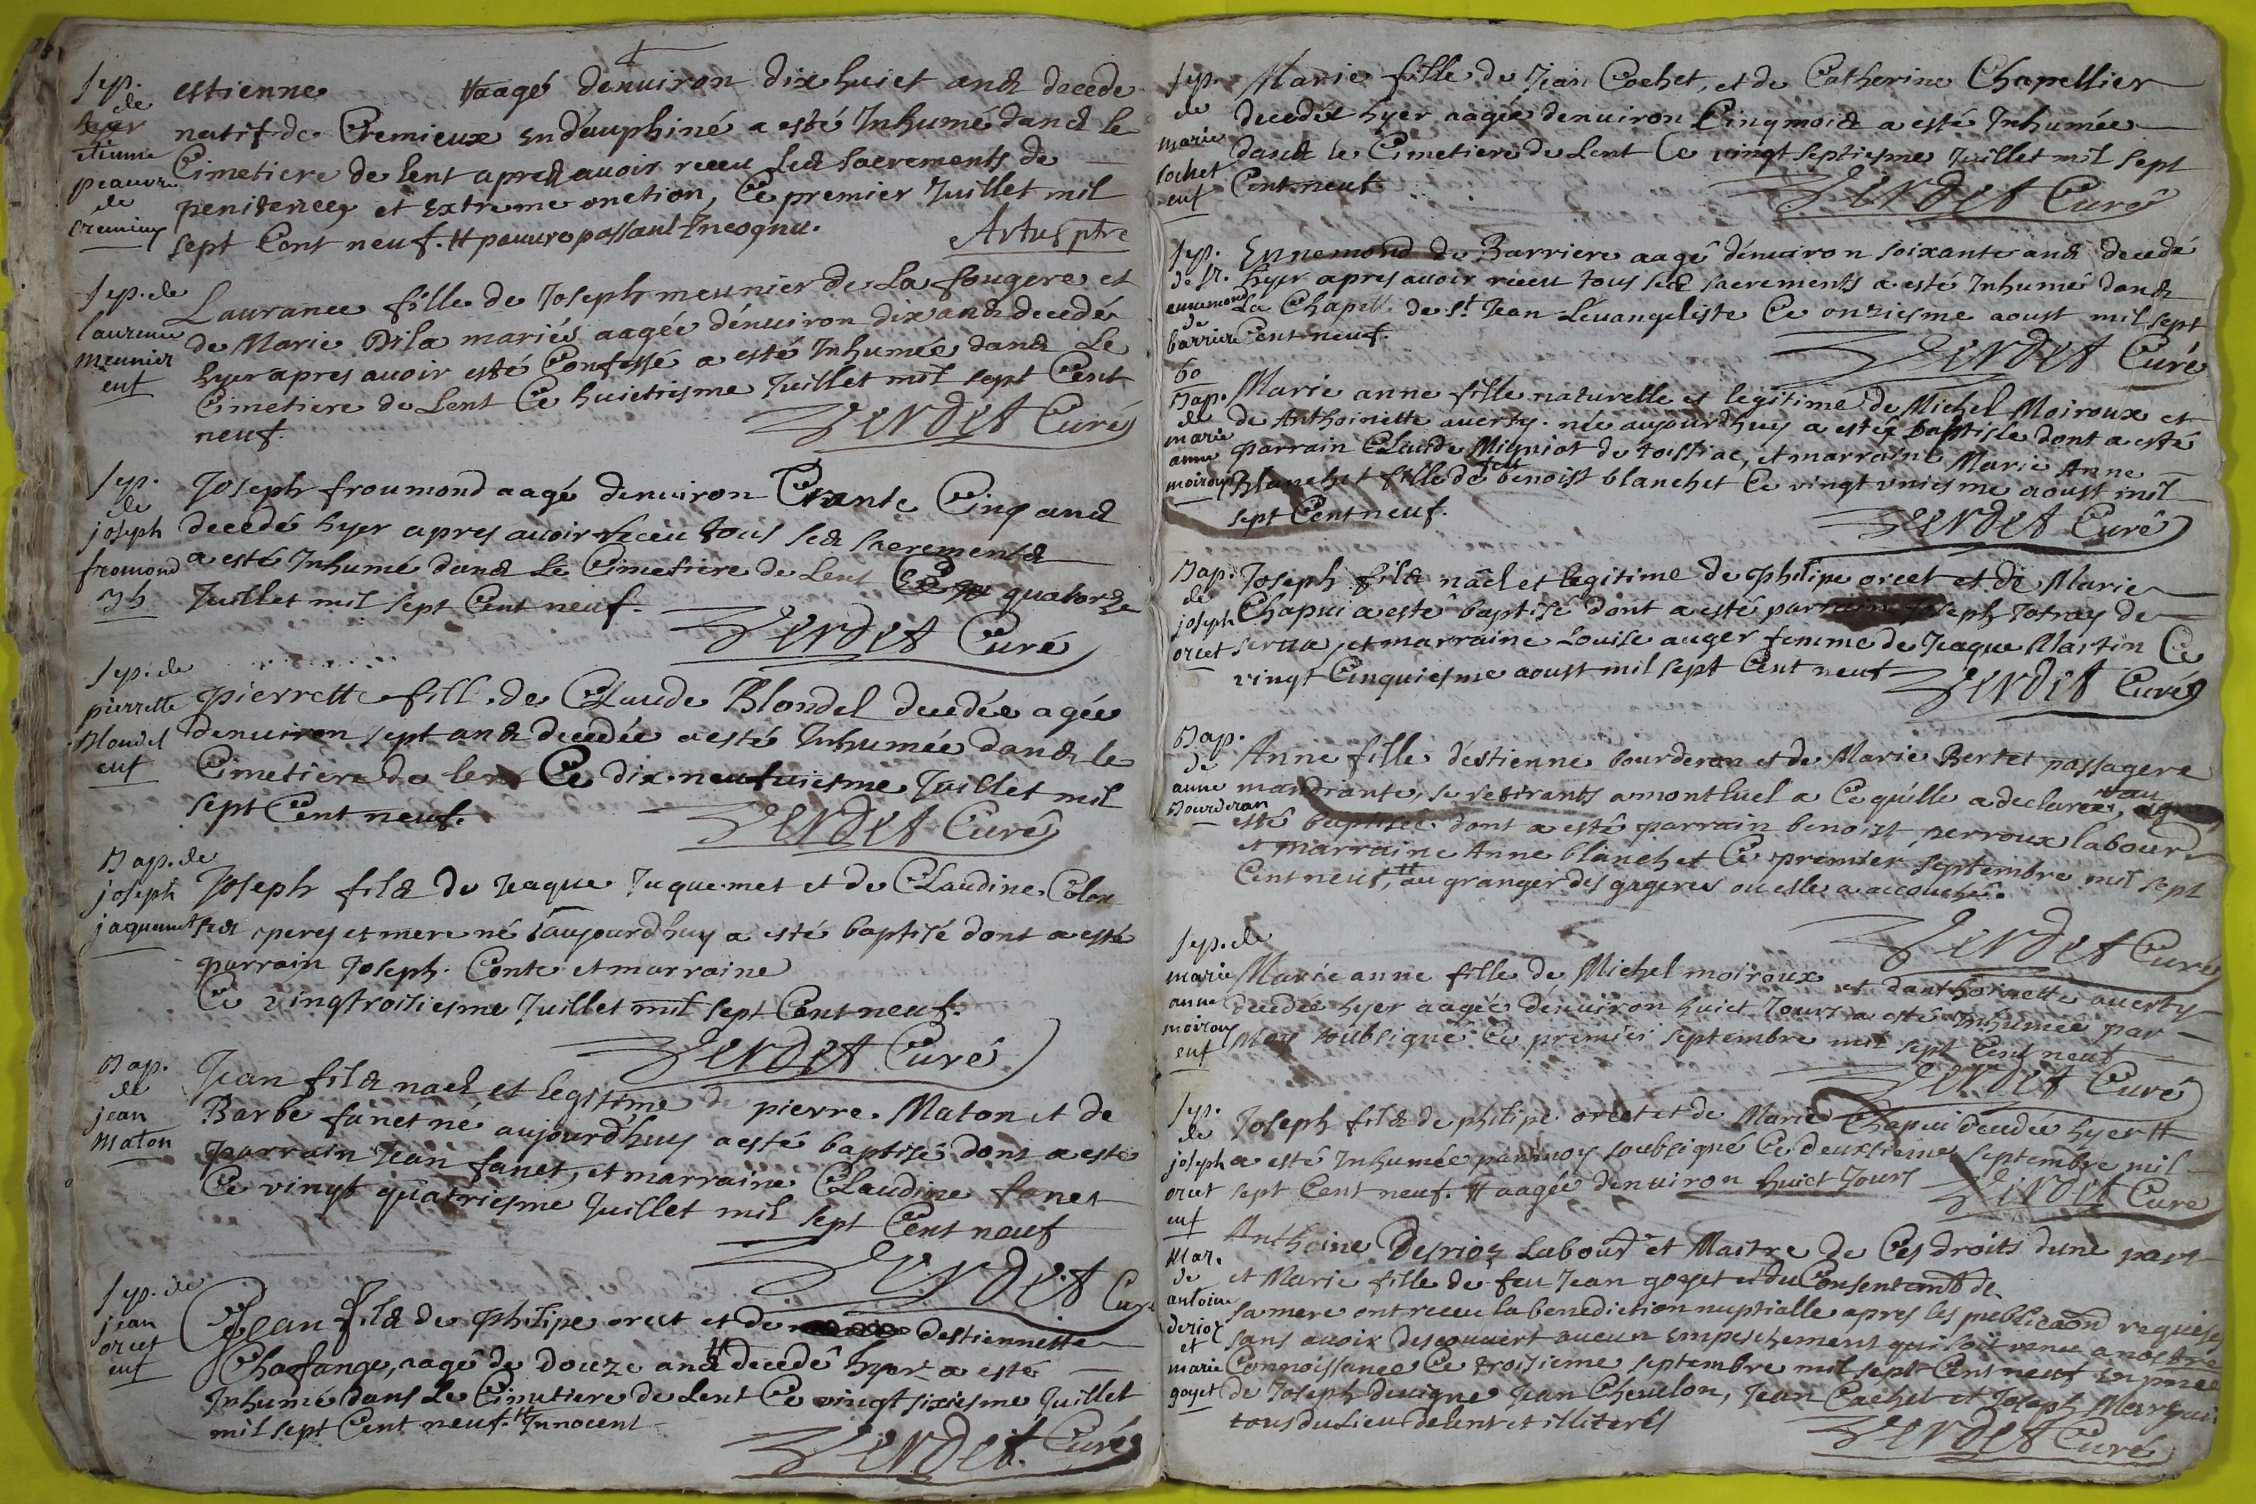 Sep.
de
etienne
peauvre
de
cremieux
estienne # aagé denuiron dix huict ans decede
natif de Cremieux en dauphiné a esté Inhumé dans le
Cimetiere de lent apres auoir receu les sacrements de
penitence et extreme onction, Ce premier Juillet mil
sept Cent neuf. # pauure passant Incognu.
Artus ptre
Sep. de
laurence
meunier
enf
Laurance fille de Joseph meunier de La fougere et
de Marie Dila mariés aagée dénuiron dix ans decedé
hyer apres auoir esté Confessé a esté Inhumée dans Le
Cimetiere de Lent Ce huictiesme Juillet mil sept Cent
neuf.
Verdet Curé
Sep.
de
joseph
fromond
35
Joseph froumond aagé denuiron Trante Cinq ans
decedé hyer apres auoir receu tous ses sacrements
a esté Inhumé dans Le Cimetiere de Lent Ce quatorze
Juillet mil sept Cent neuf.
Verdet Curé
Sep. de
pierrette
Blondel
enf
pierrette fille de Claude Blondel decedée agée
denuiron sept ans decedée a esté Inhumée dans le
Cimetiere de lent Ce dix neufuiesme Juillet mil
sept Cent neuf.
Verdet Curé
Bap. de
joseph
jaquemet
Joseph fils de Jeaque Juquemet et de Claudine Colon
ses peres et mere né aujourdhuy a esté baptisé dont a esté
parrain Joseph Conte et marraine
Ce vingtroisiesme Juillet mil sept Cent neuf.
Verdet Curé
Bap.
de
jean
Maton
Jean fils nael et legitime d pierre Maton et de
Barbe fanet né aujourdhuy a esté baptisé dont a esté
parrain Jean fanet, et marraine Claudine fanet
Ce vingt quatriesme Juillet mil sept Cent neuf
Verdet Curé
Sep. de
jean
orcet
enf
Jean fils de Philipe orcet et de destiennette
Chafange, aagé de douze ans # decedé hyer a esté
Inhumé dans Le Cimetiere de Lent Ce vingt sixiesme Juillet
mil sept Cent neuf. # Innocent
Verdet Curé
Sep.
de
marie
cochet
enf
Marie fille de Jean Cochet, et de Catherine Chapellier
decedée hyer aagée denuiron Cinq mois a esté Inhumée
dans le Cimetiere de Lent Ce vingt septiesme Juillet mil sept
Cent neuf.
Verdet Curé
Sep.
de sr.
ennemond
de
barriere
60
Ennemond de Barriere aagé dénuiron soixante ans decedé
hyer apres auoir receu tous ses sacrements a esté Inhumé dans
La Chapell de St Jean Léuangeliste Ce onziesme aoust mil sept
Cent neuf.
Verdet Curé
Bap.
de
marie
anne
moiroux
Marie anne fille naturelle et legitime de Michel Moiroux et
de Anthoinette auerty. née aujourdhuy a estée baptisée dont a esté
parrain Claude Migniot de tossiac, et marraine Marie Anne
Blanchet fille de feu benoist blanchet Ce vingt vniesme aoust mil
sept Cent neuf.
Verdet Curé
Bap.
de
joseph
orcet
Joseph fils nael et legitime de Philipe orcet et de Marie
Chapui a esté baptisé dont a esté parrain Joseph Jotray de
serua, et marraine Louise auger femme de Jeaque Martin Ce
vingt Cinquiesme aoust mil sept Cent neuf
Verdet Curé
Bap.
de
anne
Bourderan
Anne fille déstienne bourderan et de Marie Bertet passagere
mandiante, se retirants a montluel a Ce quélle a declaree, #
esté baptisée dont a esté parrain benoist perroux labour
et marraine Anne blanchet Ce premier septembre mil sept
Cent neuf, # au granger des gageres ou elle a accouchée.
Verdet Curé
Sep. de
marie
anne
moiroux
enf
Marie anne fille de Michel moiroux et danthoinette auerty
decedée hyer aagée dénuiron huict Jours a esté Inhumée par
Moy soubsigné Ce premier septembre mil sept Cent neuf
Verdet Curé
Sep.
de
joseph
orcet
enf
Joseph fils de philipe orcet et de Marie Chapui decedée hyer #
a esté Inhumée par moy soubsigné Ce deuxiesme septembre mil
sept Cent neuf. # aagée denuiron huict Jours
Verdet Curé
Mar.
de
antoine
derioz
et
marie
goyet
Anthoine Desrioz Labour et Maitre de Ces droits dune part
et Marie fille de feu Jean goyet et du Consentant de
sa mere ont receu la benediction nuptialle apres les publicaons requises
sans auoir descouuert aucun empeschement qui soit venu a nostre
Connoissance Ce troisieme septembre mil sept Cent neuf en pnce
de Joseph deuigne Jean Cheulon, Jean Cachet et Joseph Marguin
tous du Lieu de Lent et illiterés
Verdet Curé